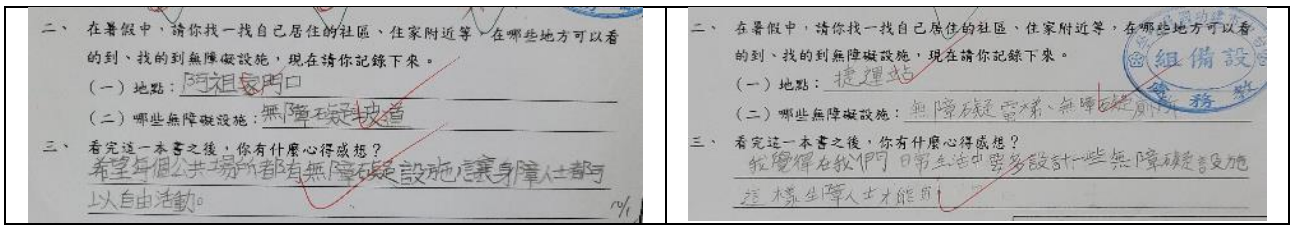 二、 在暑假中，請你找一找自己居住的社區、住家附近等，在哪些地方可以看
的到、找的到無障礙設施，現在請你記錄下來。
（一）地點：阿祖家門口
（二）哪些無障礙設施：無障礙坡道
三、 看完這一本書之後，你有什麼心得感想？
希望每個公共場所都有無障礙設施，讓身障人士都可
以自由活動。
10/1
二、 在暑假中，請你找一找自己居住的社區、住家附近等，在哪些地方可以看
的到、找的到無障礙設施，現在請你記錄下來。
（一）地點：捷運站
（二）哪些無障礙設施：無障礙電梯、無障礙廁所
三、 看完這一本書之後，你有什麼心得感想？
我覺得在我們日常生活中要多設計一些無障礙設施
這樣生障人士才能
組備設
處務教